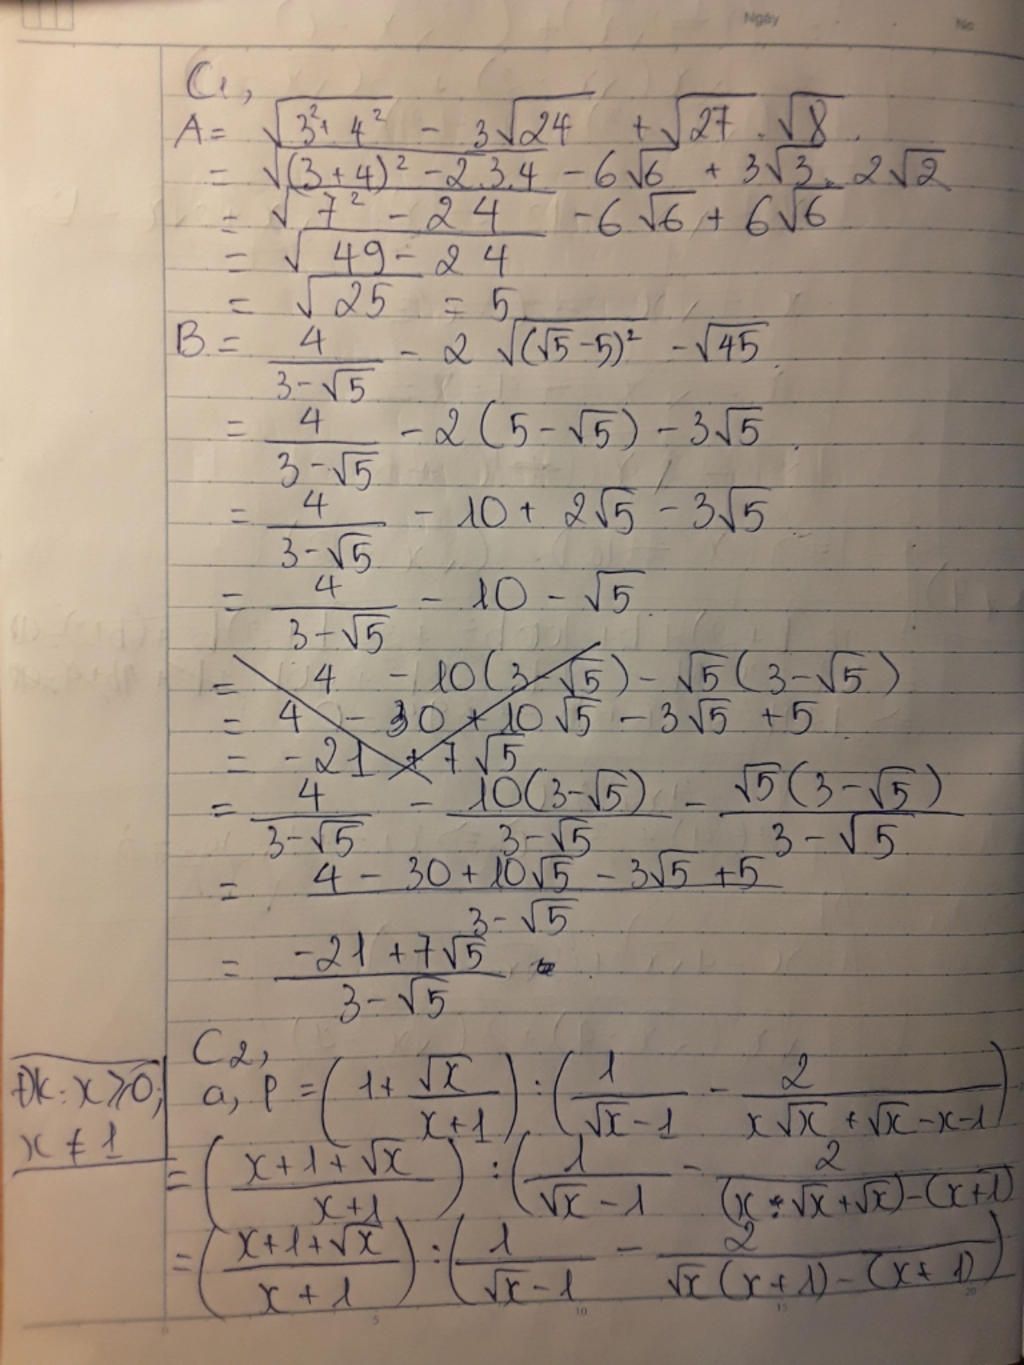 Ngày No
C1,
A = √(3²+4²) - 3√24 + √27 . √8.
= √((3+4)² - 2.3.4) - 6√6 + 3√3 . 2√2
= √(7² - 24) - 6√6 + 6√6
= √(49 - 24)
= √25 = 5
B = 4/(3-√5) - 2√((√5-5)²) - √45.
= 4/(3-√5) - 2(5-√5) - 3√5.
= 4/(3-√5) - 10 + 2√5 - 3√5
= 4/(3-√5) - 10 - √5.
= 4 - 10(3-√5) - √5(3-√5)
= 4 - 30 + 10√5 - 3√5 + 5
= -21 + 7√5
= 4/(3-√5) - 10(3-√5)/(3-√5) - √5(3-√5)/(3-√5)
= (4 - 30 + 10√5 - 3√5 + 5)/(3-√5)
= (-21 + 7√5)/(3-√5)
C2,
ĐK: x ≥ 0;
x ≠ 1
a, P = (1 + √x/(x+1)) : (1/(√x-1) - 2/(x√x + √x - x - 1))
= ((x+1+√x)/(x+1)) : (1/(√x-1) - 2/((x.√x+√x)-(x+1))
= ((x+1+√x)/(x+1)) : (1/(√x-1) - 2/(√x(x+1)-(x+1)))
5 10 15 20